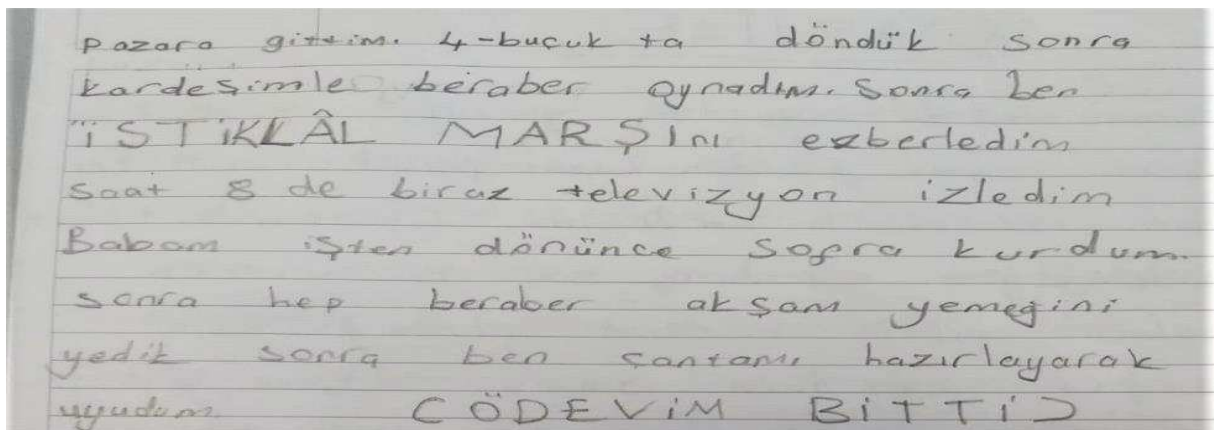 pazara gittim. 4-buçuk ta döndük sonra
kardeşimle beraber oynadım. Sonra ben
İSTİKLÂL MARŞInı ezberledim
saat 8 de biraz televizyon izledim
Babam işten dönünce sofra kurdum.
sonra hep beraber akşam yemeğini
yedik sonra ben çantamı hazırlayarak
uyudum (ÖDEVİM BİTTİ)